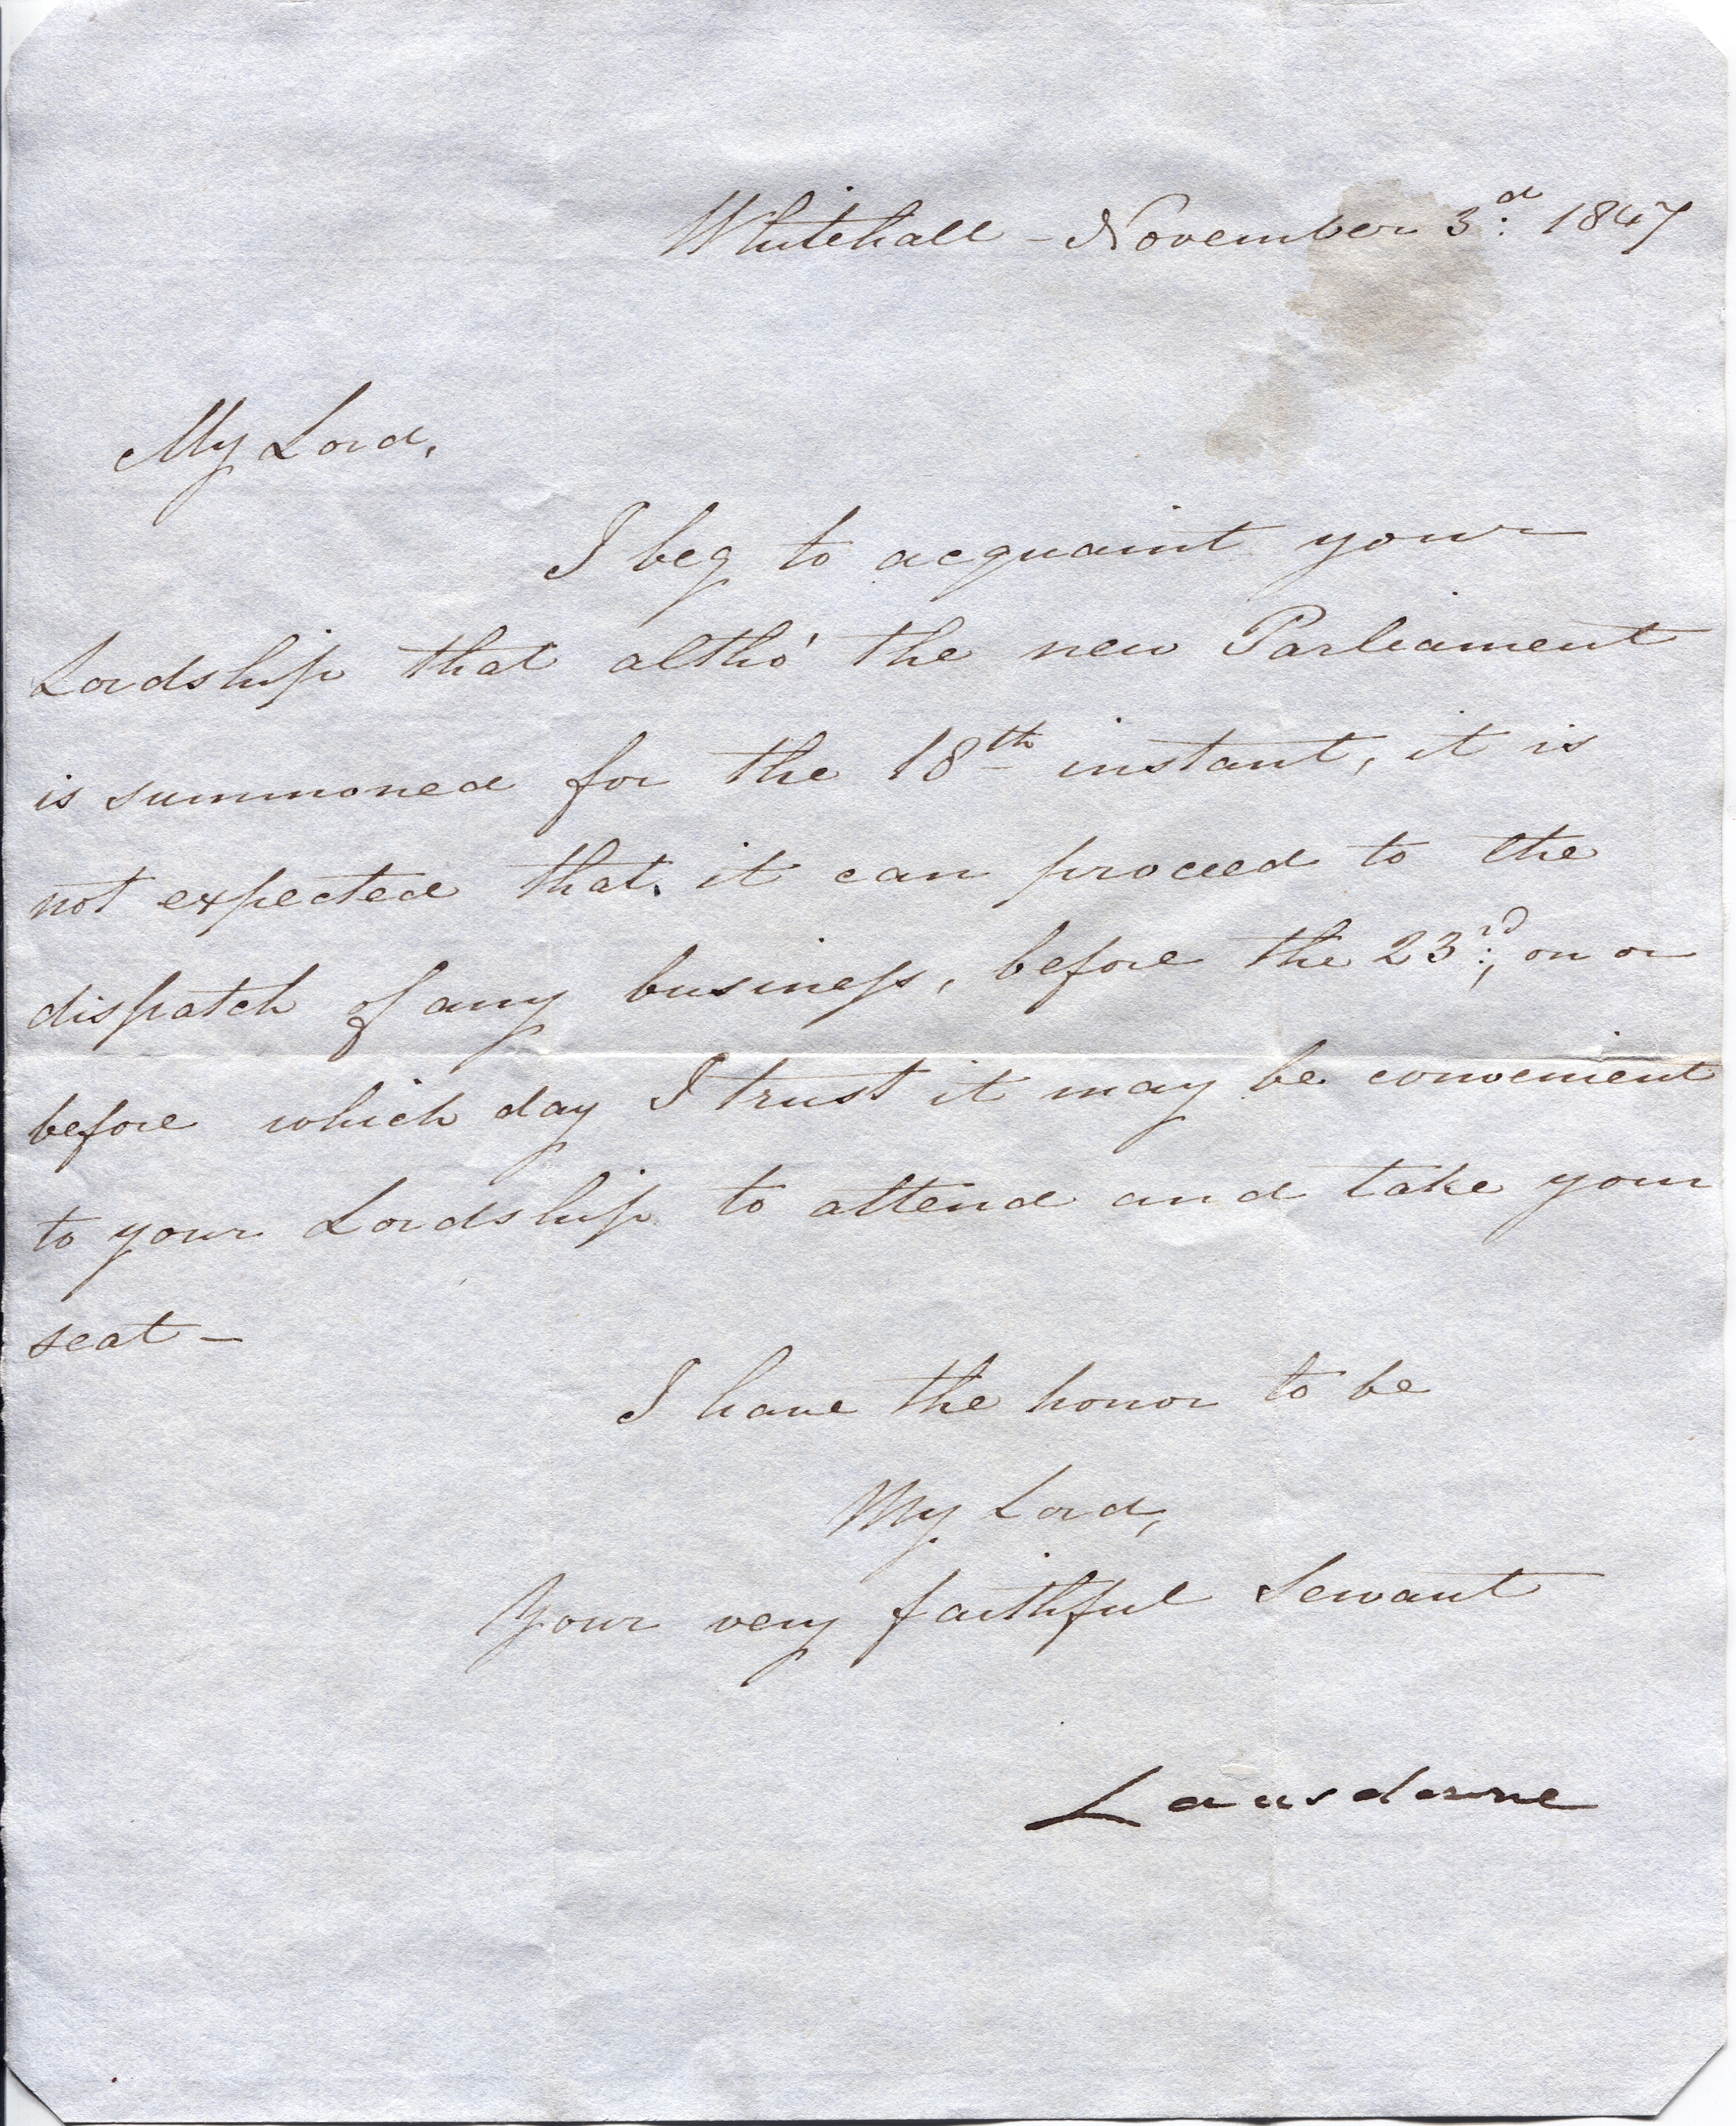 Whitehall - November 3.d 1847
My Lord,
I beg to acquaint your
Lordship that altho' the new Parliament
is summoned for the 18th instant, it is
not expected that it can proceed to the
dispatch of any business, before the 23rd, on or
before which day I trust it may be convenient
to your Lordship to attend and take your
seat -
I have the honor to be
My Lord,
Your very faithful Servant
Lansdowne